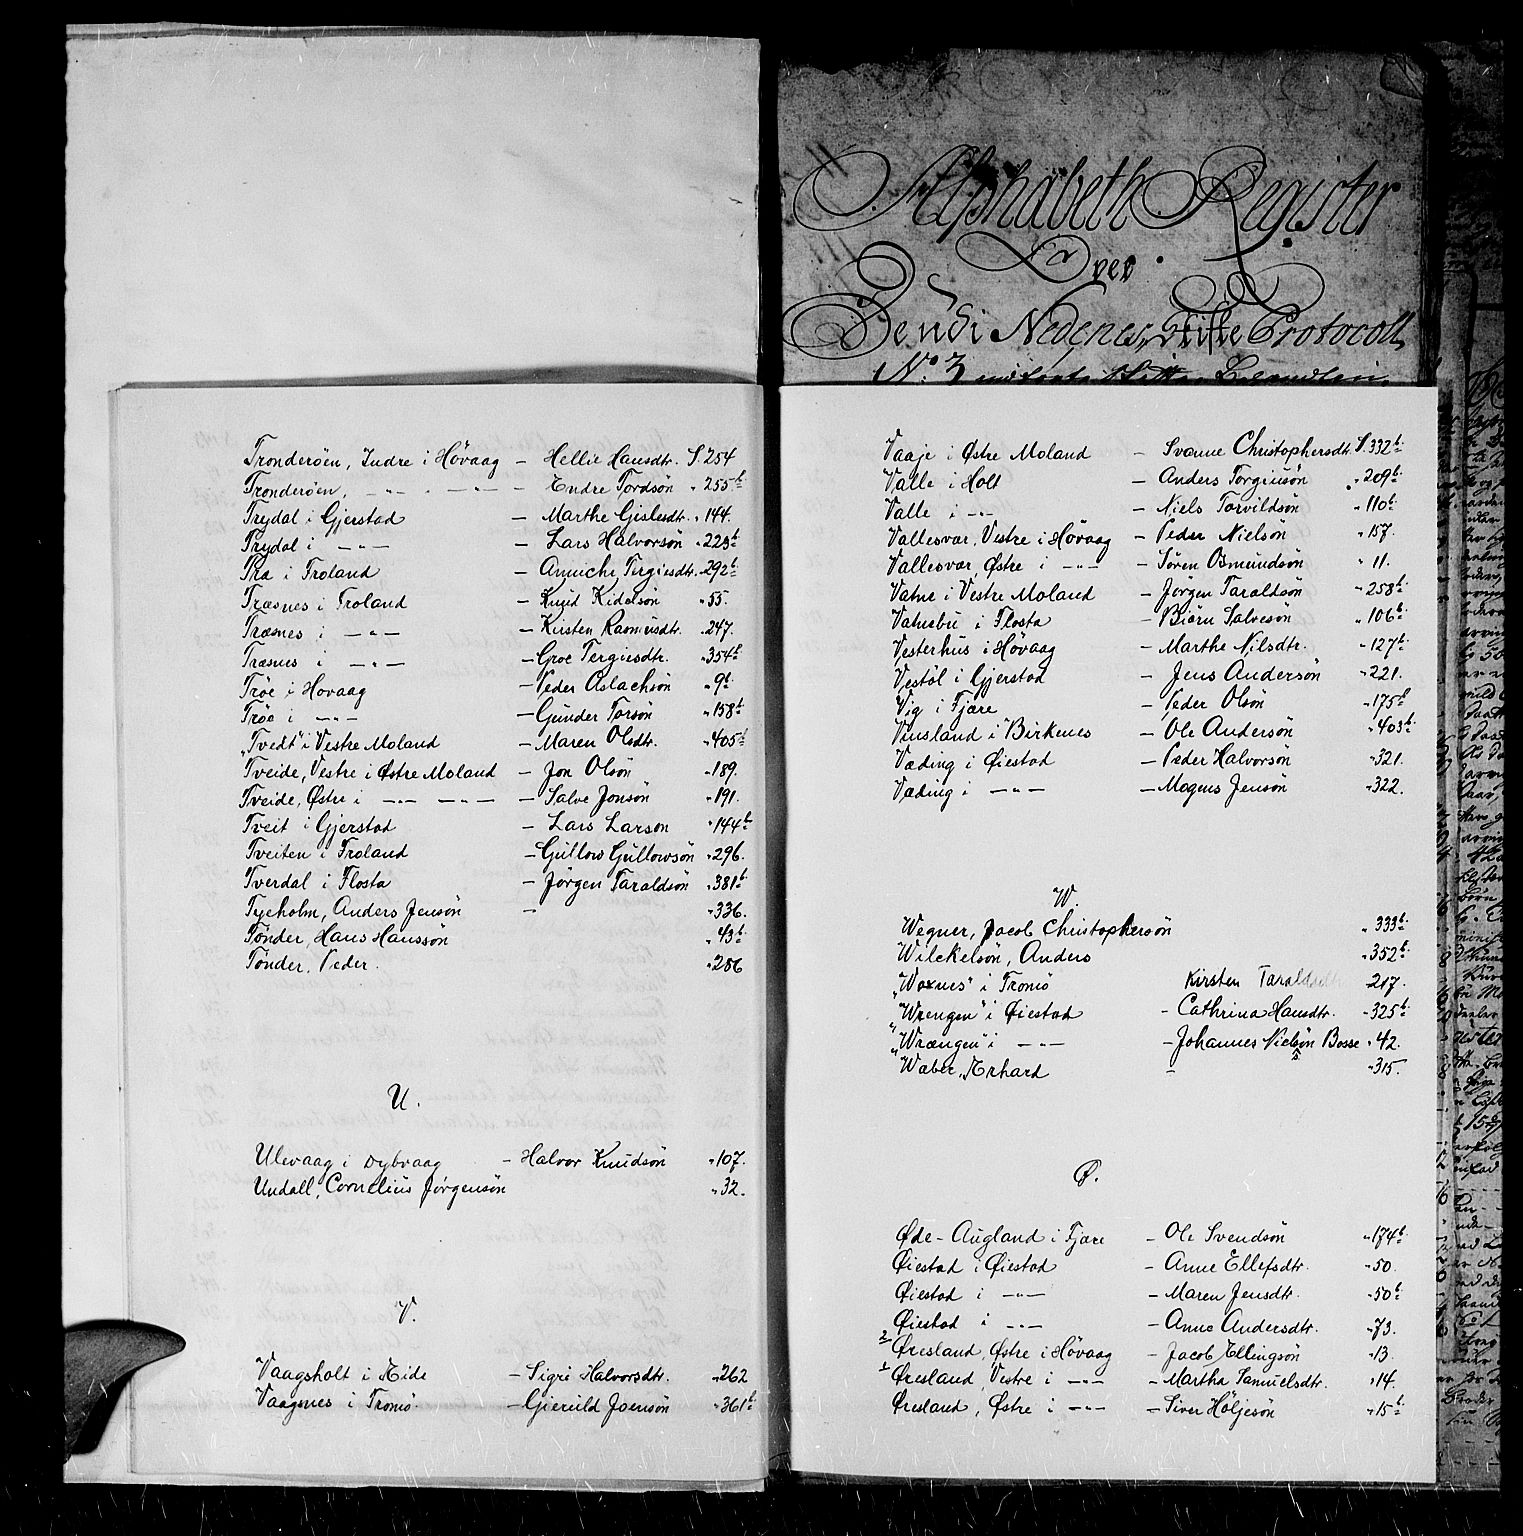 Tronderöen, Indre i Hövaag – Hellie Hansdtr. S. 254
Tronderöen, –"– . –"– – Endre Tordsön " 255b
Trydal i Gjerstad – Marthe Gislesdtr. " 144.
Trydal i –"– – Lars Halvorsön " 223b
Træ i Froland – Anniche Tergiesdtr. " 292b
Træsnes i Froland – Knud Kidelsön " 55.
Træsnes i –"– – Kirsten Rasmusdtr. " 247.
Træsnes i –"– – Groe Tergiesdtr. " 354b
Tröe i Hövaag – Peder Aslachsön " 9b
Tröe i –"– – Gunder Torsön " 158b
"Tvedt" i Vestre Moland – Maren Olsdtr. " 405b
Tveide, Vestre i Østre Moland – Jon Olsön " 189.
Tveide, Østre i –"– –"– – Salve Jonsön " 191.
Tveit i Gjerstad – Lars Larsön " 144b
Tveiten i Froland – Gullow Gullowsön " 296.
Tverdal i Flosta – Jörgen Taraldsön " 381b
Tyeholm, Anders Jensön – " 336.
Tönder, Hans Hanssön " 43b
Tönder, Peder. " 286
U.
Ulevaag i Dybvaag – Halvor Knudsön " 107.
Undall, Cornelius Jörgensön " 32.
V.
Vaagsholt i Eide – Sigri Halvorsdtr. " 262
Vaagsnes i Tromö – Gjeruld Joensön " 361b
Alphabeth Register
Over
Dend i Nedenes, Skifte Protocoll
No. 3
Vaaje i Østre Moland – Svanne Christophersdtr. S. 332b
Valle i Holt – Anders Torgiusön " 209b
Valle i –"– – Niels Torvildsön " 110b
Vallesvær, Vestre i Hövaag – Peder Nielsön " 157.
Vallesvær Østre i –"– – Sören Osmundsön " 11.
Vatne i Vestre Moland – Jörgen Taraldsön " 258b
Vatnebu i Flosta – Biörn Salvesön " 106b
Vesterhus i Hövaag – Marthe Nilsdtr. " 127b
Vestöl i Gjerstad – Jens Andersön " 221.
Vig i Fjære – Peder Olsön " 175b
Vinsland i Birkenes – Ole Andersön " 403b
Væding i Øiestad – Peder Halvorsön " 321.
Væding i –"– – Mogens Jensön " 322.
W.
Wegner, Jacob Christophersön " 333b
Wilckelsön, Anders " 352b
"Woxnes" i Tromö Kirsten Taraldsdtr. 217.
"Wrengen" i Øiestad – Cathrina Hansdtr. " 325b
"Wrængen" i –"– – Johannes Nielsön Bosse " 42.
"Wæber, Erhard – " 315.
Ø.
Øde-Augland i Fjære – Ole Svendsön " 174b
Øiestad i Øiestad – Anne Ellefsdtr. " 50.
Øiestad i –"– – Maren Jensdtr. " 50b
Øiestad i –"– – Anne Andersdtr. " 73.
2 Øresland, Østre i Hövaag – Jacob Ellingsön " 13.
1 Øresland, Vestre i –"– – Martha Samuelsdtr. " 14.
Øresland, Østre i –"– – Siver Höljesön " 15b